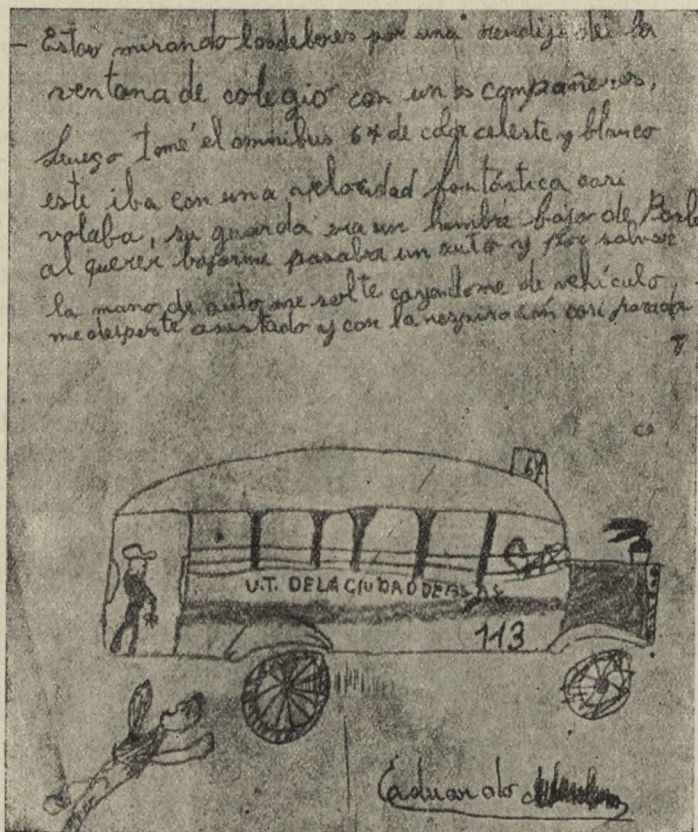 — Estoy mirando los deberes por una rendija de la
ventana de colegio con unos compañeros,
luego tomé el omnibus 64 de color celeste y blanco
este iba con una velocidad fantástica casi
volaba, su guarda era un hombre bajo de
al querer bajarme pasaba un auto y por salvar
la mano de auto, me solté cayendome de vehículo,
me desperté asustado y con la respiración casi parada
64
U.T. DE LA CIUDAD DE BS AS
113
Eduardo